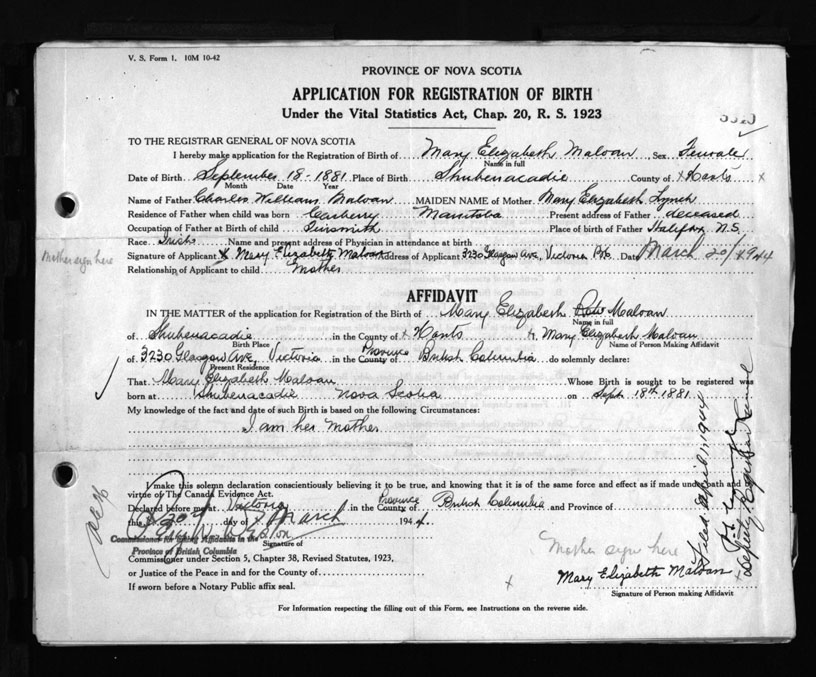 V. S. Form 1. 10M 10-42
PROVINCE OF NOVA SCOTIA
APPLICATION FOR REGISTRATION OF BIRTH
Under the Vital Statistics Act, Chap. 20, R. S. 1923
TO THE REGISTRAR GENERAL OF NOVA SCOTIA
I hereby make application for the Registration of Birth of Mary Elizabeth Maloan Sex Female
Name in full
Date of Birth September 18 - 1881 Place of Birth Shubenacadie County of x Hants x
Month Date Year
Name of Father Charles William Maloan MAIDEN NAME of Mother Mary Elizabeth Lynch
Residence of Father when child was born Carberry Manitoba Present address of Father deceased
Occupation of Father at Birth of child Tinsmith Place of birth of Father Halifax N.S.
Race Irish Name and present address of Physician in attendance at birth
Mother sign here
Signature of Applicant x Mary Elizabeth Maloan Address of Applicant 3230 Glasgow Ave, Victoria B.C. Date March 20/1944
Relationship of Applicant to child Mother
AFFIDAVIT
IN THE MATTER of the application for Registration of Birth of Mary Elizabeth Maloan
Name in full
of Shubenacadie in the County of x Hants I, Mary Elizabeth Maloan
Birth Place Name of Person Making Affidavit
of 3230 Glasgow Ave, Victoria in the County of Province British Columbia do solemnly declare:
Present Residence
That Mary Elizabeth Maloan Whose Birth is sought to be registered was
born at Shubenacadie Nova Scotia on Sept. 18th 1881
My knowledge of the fact and date of such Birth is based on the following Circumstances:
I am her Mother
I make this solemn declaration conscientiously believing it to be true, and knowing that it is of the same force and effect as if made under oath and
virtue of The Canada Evidence Act.
Declared before me at Victoria in the County of Province British Columbia and Province of
this 20th day of x March 1944.
Commissioner for taking Affidavits in the
Province of British Columbia
Signature of
Commissioner under Section 5, Chapter 38, Revised Statutes, 1923,
or Justice of the Peace in and for the County of
If sworn before a Notary Public affix seal.
Mother sign here
x Mary Elizabeth Maloan
Signature of Person making Affidavit
For Information respecting the filling out of this Form, see Instructions on the reverse side.
Filed April 11 1944
Deputy Registrar General